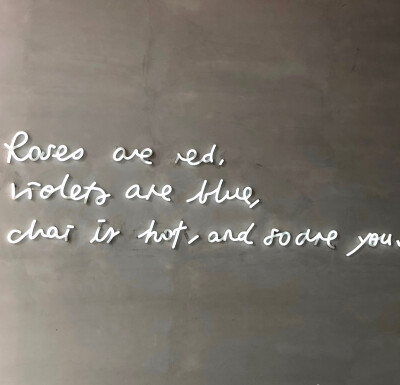 Roses are red,
violets are blue,
chai is hot, and so are you.